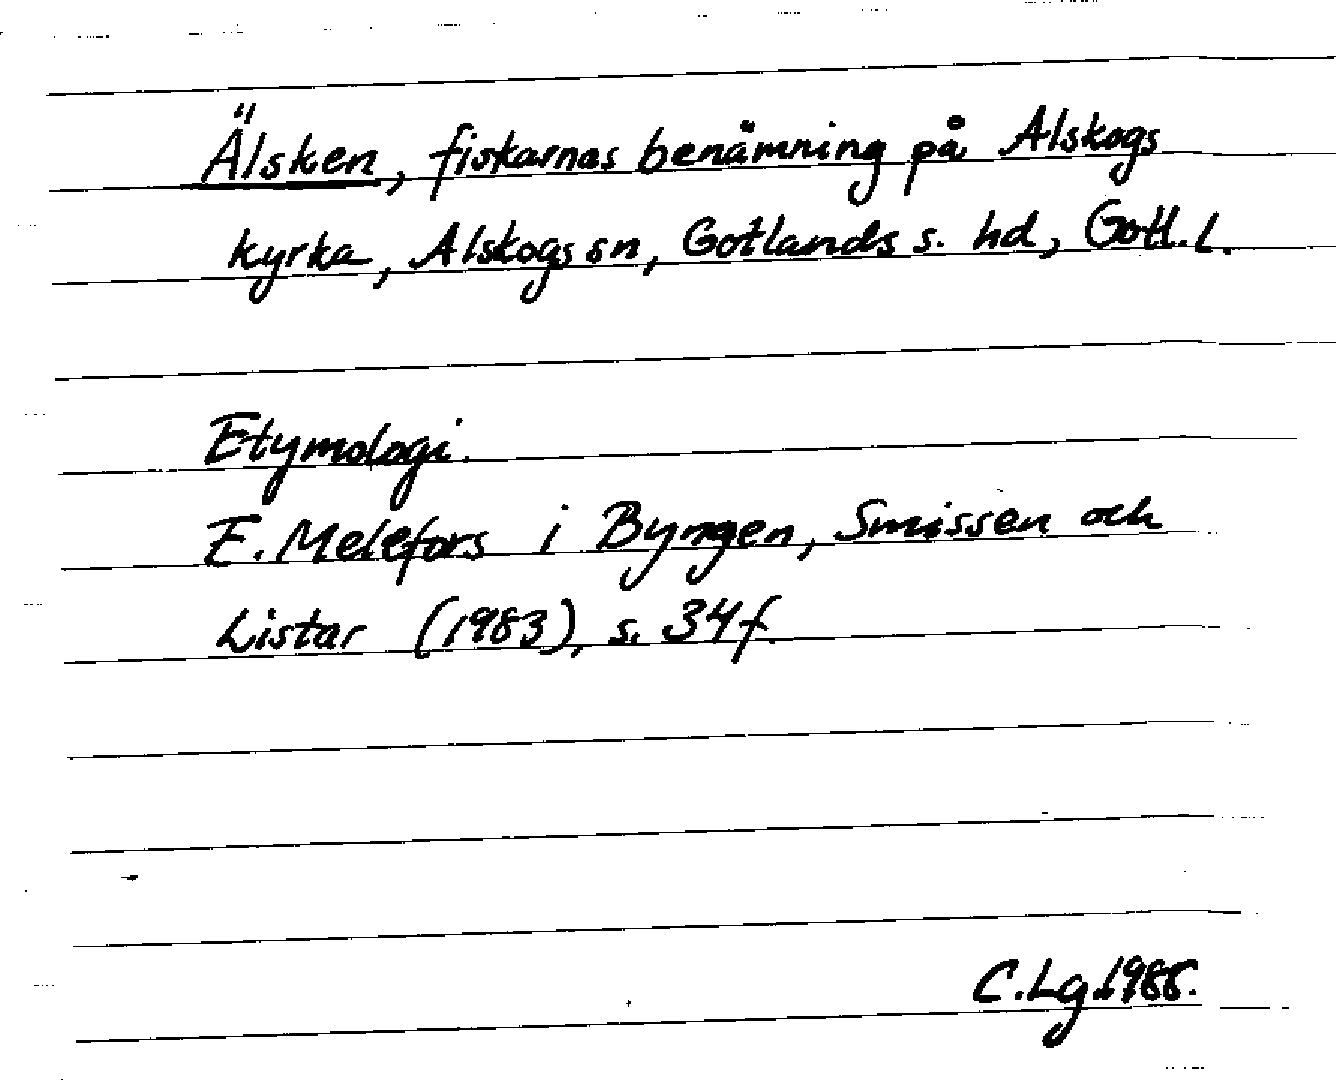 Älsken, fiskarnas benämning på Alskogs
kyrka, Alskogs sn, Gotlands s. hd, Gotl. l.
Etymologi.
E. Melefors i Byngen, Smissen och
Listar (1983), s. 34 f.
C. Lg. 1988.